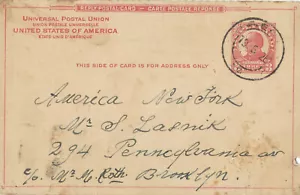 REPLY POSTAL CARD — CARTE POSTALE RÉPONSE
UNIVERSAL POSTAL UNION
UNION POSTALE UNIVERSELLE
UNITED STATES OF AMERICA
ÉTATS UNIS D'AMÉRIQUE
THIS SIDE OF CARD IS FOR ADDRESS ONLY
America New York
Mr S. Lasnik
294 Pennsylvania av
c/o Mr M. Roth Brooklyn.